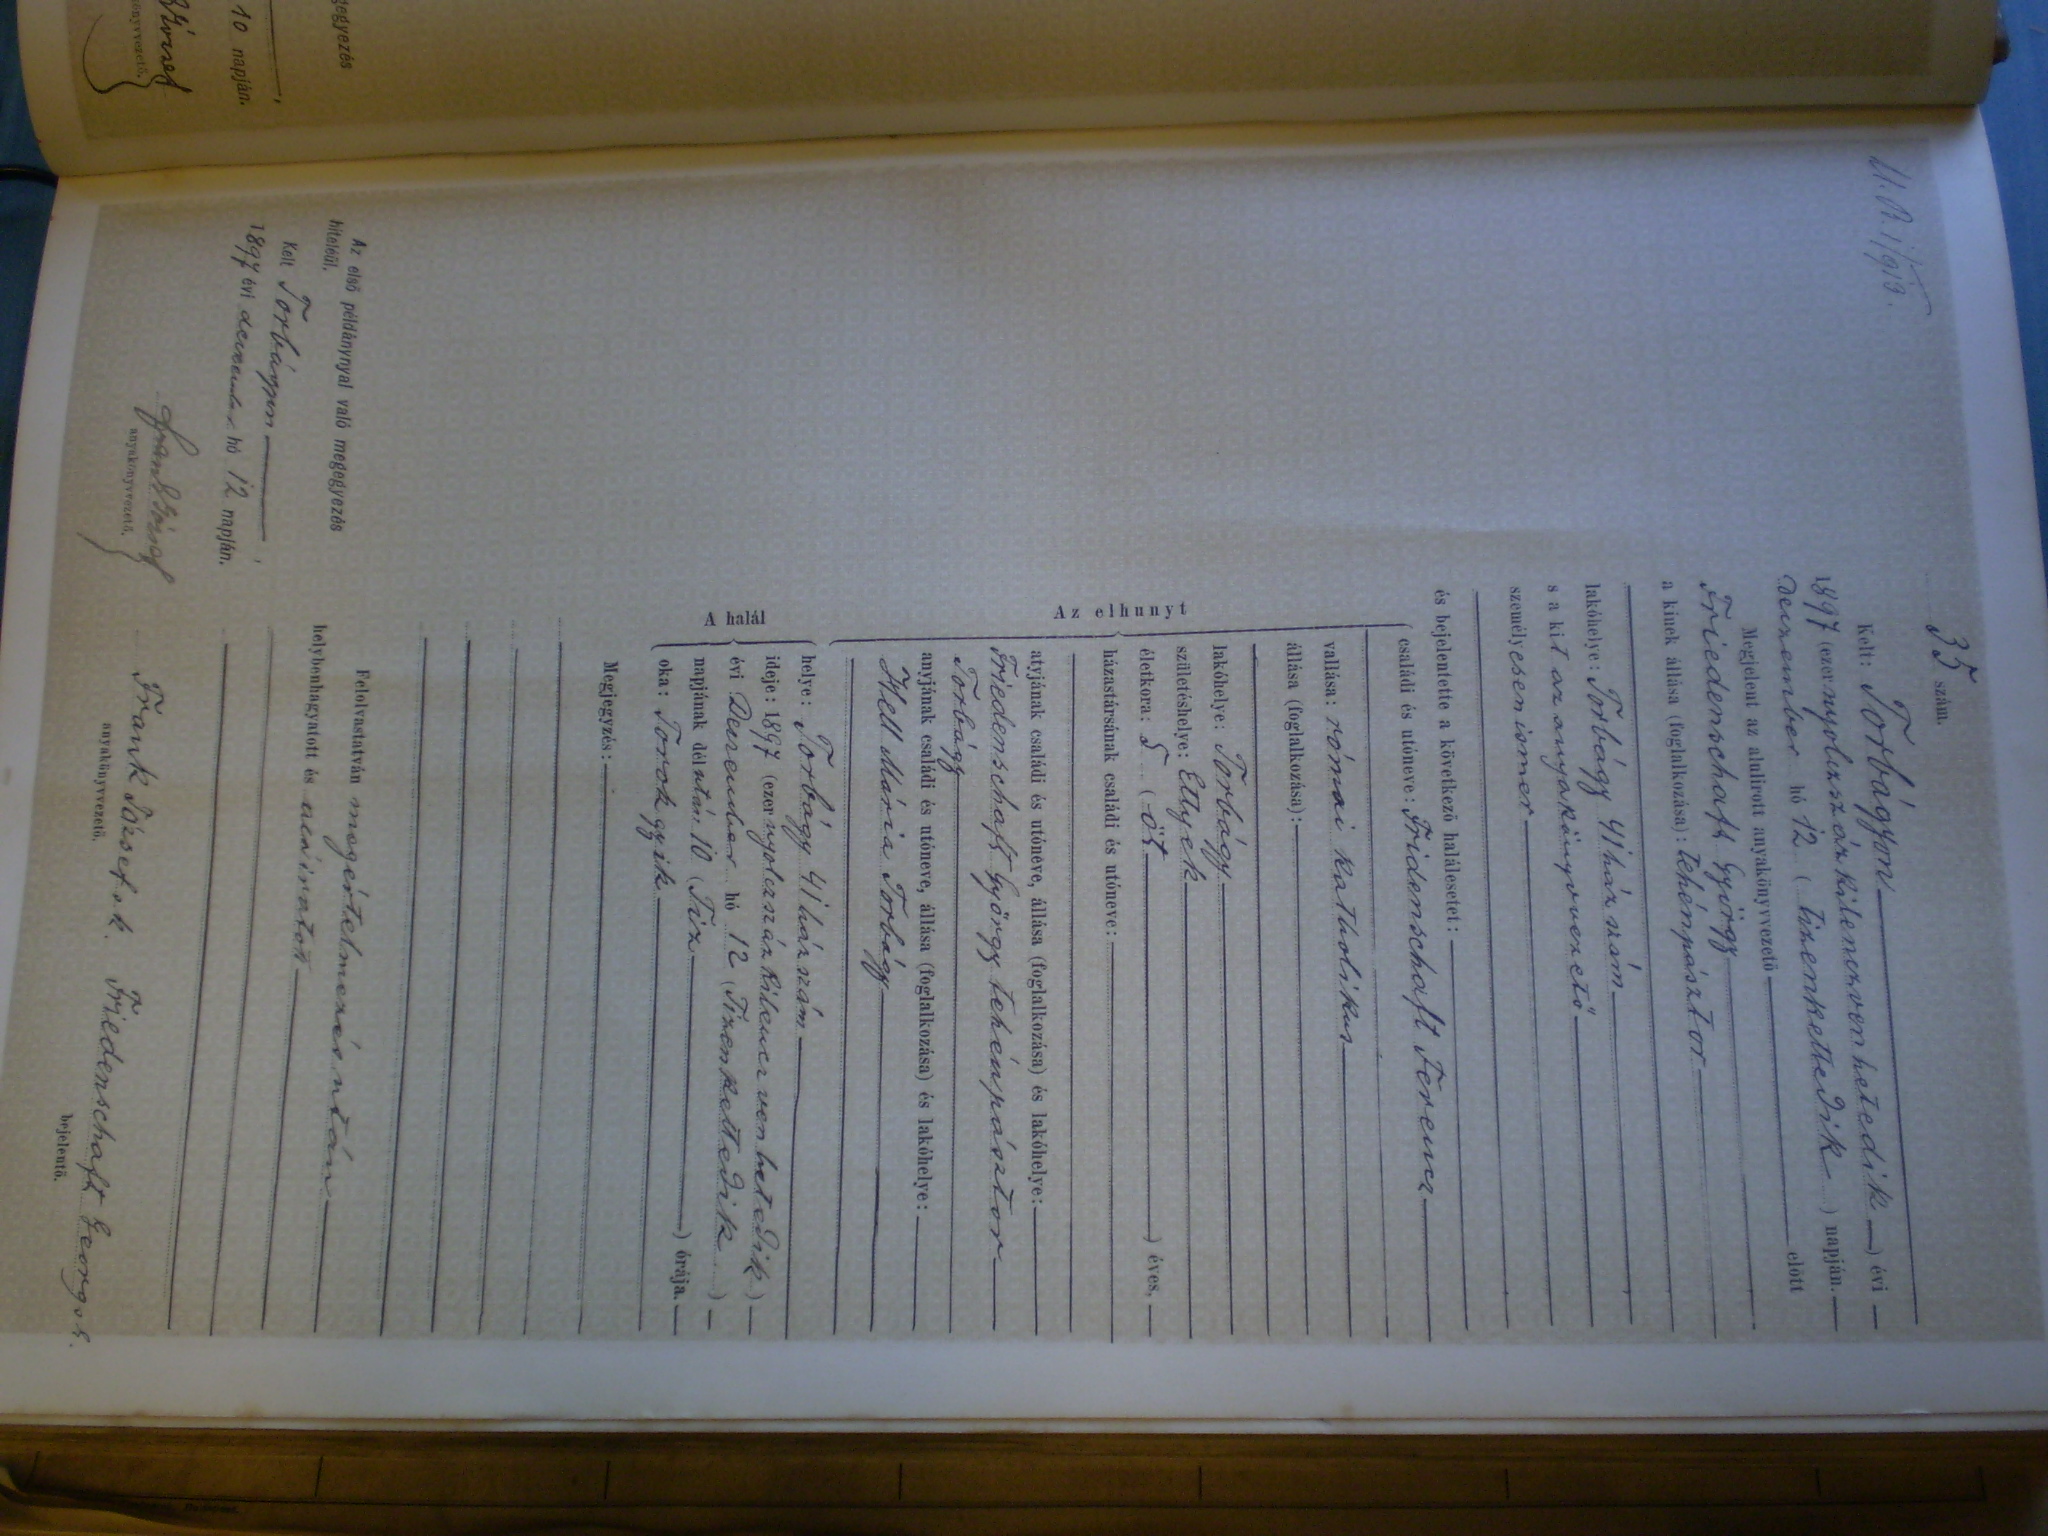 35 szám.
Kelt: Torbágyon
1897 (ezer nyolczszázkilenczvenhetedik) évi
deczember hó 12 (tizenkettedik) napján.
Megjelent az alulirott anyakönyvvezető előtt
Friedenschaft György
a kinek állása (foglalkozása): tehénpásztor
lakóhelye: Torbágy 41 ház szám
s a kit az anyakönyvvezető
személyesen ismer
és bejelentette a következő halálesetet:
Az elhunyt
családi és utóneve: Fridenschaft Ferencz
vallása: római katholikus
állása (foglalkozása):
lakóhelye: Torbágy
születéshelye: Ettyek
életkora: 5 (öt) éves,
házastársának családi és utóneve:
atyjának családi és utóneve, állása (foglalkozása) és lakóhelye:
Friedenschaft György tehénpásztor
Torbágy
anyjának családi és utóneve, állása (foglalkozása) és lakóhelye:
Hell Mária Torbágy
A halál
helye: Torbágy 41 ház szám
ideje: 1897 (ezer nyolczszázkilenczvenhetedik)
évi Deczember hó 12 (Tizenkettedik)
napjának délután 10 (Tiz) órája.
oka: Torokgyik
Megjegyzés:
Felolvastatván megértelmezés után
helybenhagyatott és aláiratott
Frank József s.k. Friedenschaft Georg s.k.
anyakönyvvezető. bejelentő.
Az első példánynyal való megegyezés
hiteléül.
Kelt Torbágyon
1897 évi deczember hó 12 napján.
Frank József
anyakönyvvezető.
egyezés
10 napján.